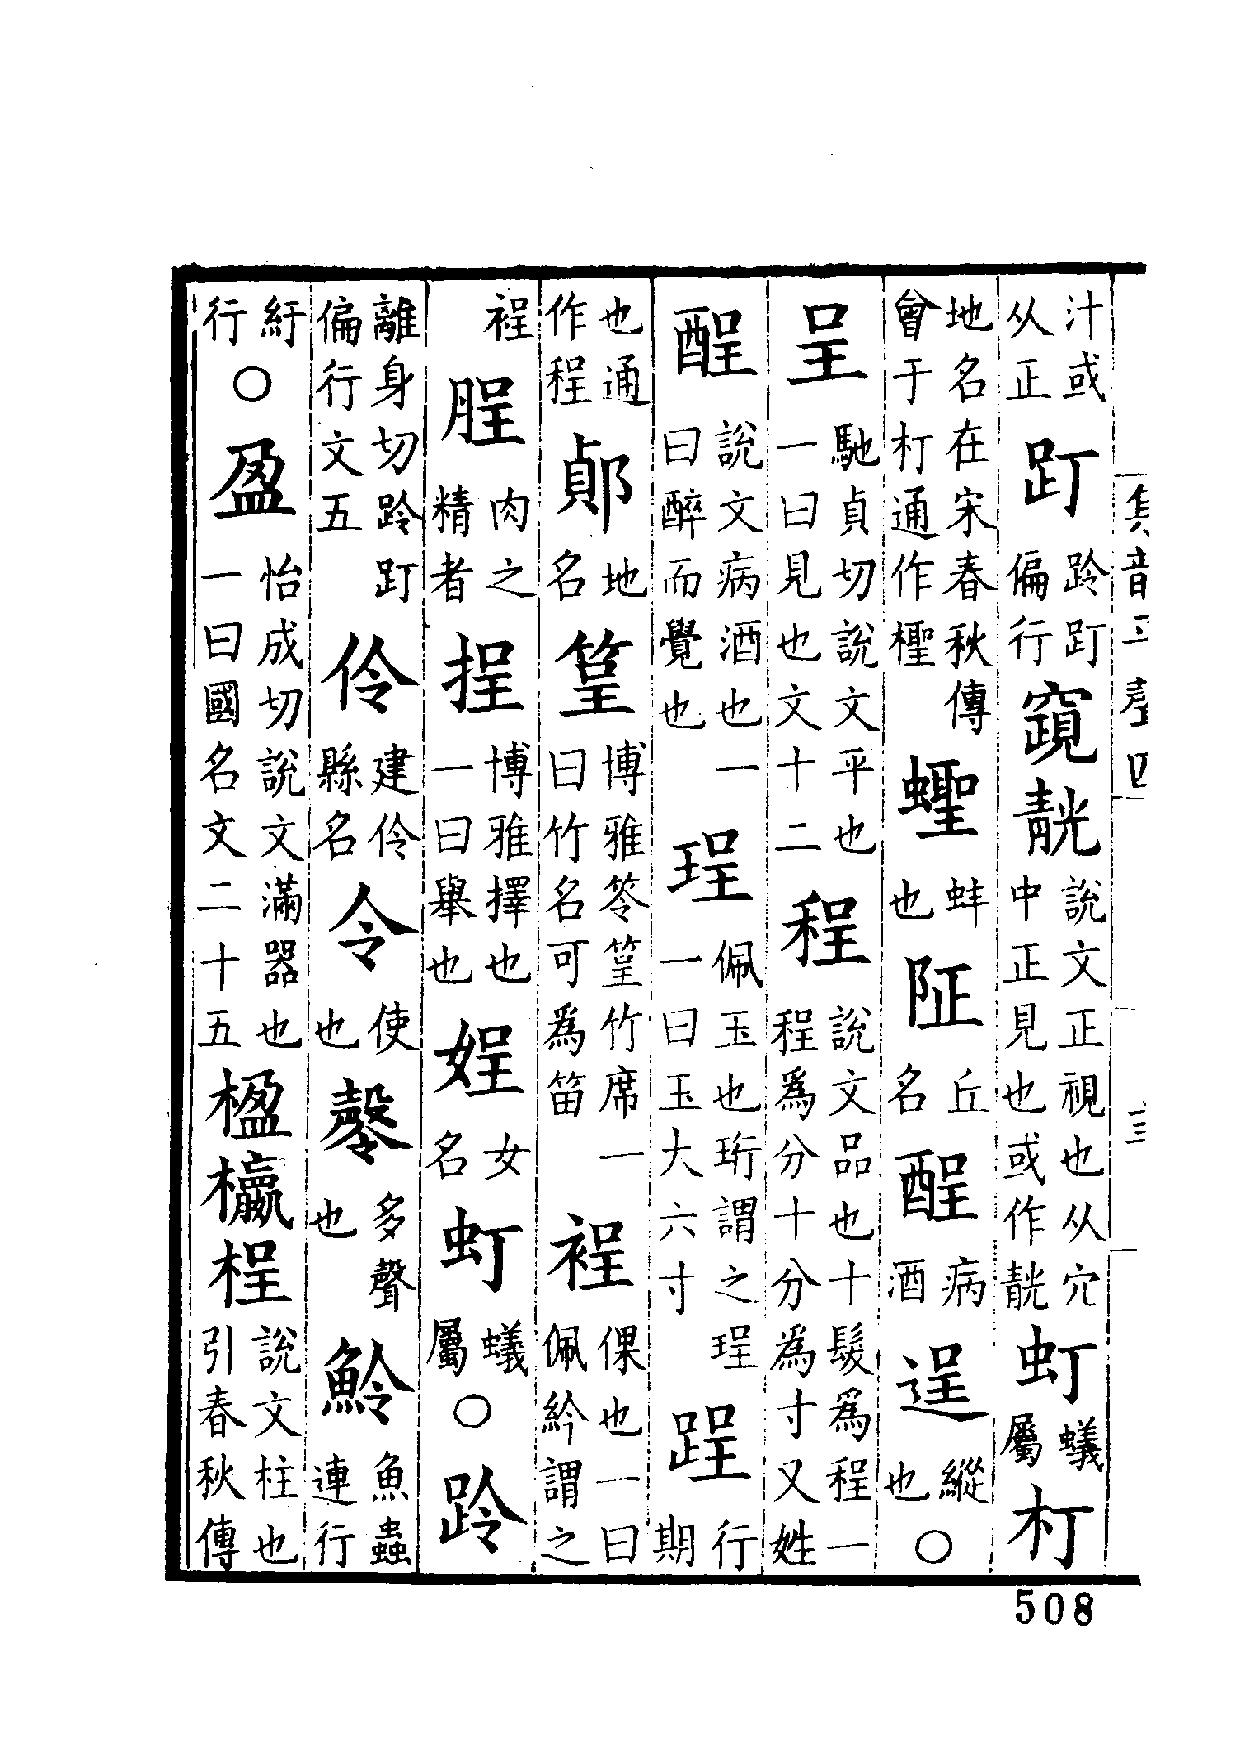 汁或从正䟓跉䟓偏行窺䚎說文正視也从穴中正見也或作䚎虰蟻屬朾
地名在宋春秋傳曾于朾通作檉蟶蚌也阷丘名酲病酒逞縱也〇
呈馳貞切說文平也一曰見也文十二程說文品也十髮為程一程為分十分為寸又姓
酲說文病酒也一曰醉而覺也珵佩玉也珩謂之珵一曰玉大六寸踁行期
也通作程郥地名筳博雅笭筳竹席一曰竹名可為笛裎倮也一曰佩紟謂之
裎脭肉之精者挰博雅擇也一曰舉也娙女名虰蟻屬〇跉
離身切跉䟓偏行文五伶建伶縣名令使也䅻多聲也魿魚蟲連行
紆行〇盈怡成切說文滿器也一曰國名文二十五楹㰓桯說文柱也引春秋傳
集韻平聲四
三
508